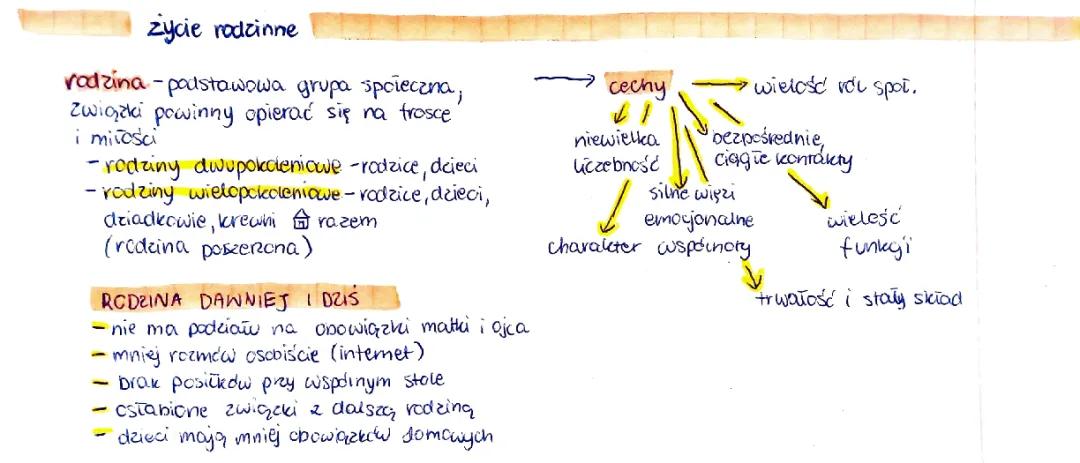 życie rodzinne
rodzina - podstawowa grupa społeczna,
związki powinny opierać się na trosce
i miłości
- rodziny dwupokoleniowe - rodzice, dzieci
- rodziny wielopokoleniowe - rodzice, dzieci,
dziadkowie, krewni razem
(rodzina poszerzona)
RODZINA DAWNIEJ I DZIŚ
- nie ma podziału na obowiązki matki i ojca
- mniej rozmów osobiście (internet)
- brak posiłków przy wspólnym stole
- osłabione związki z dalszą rodziną
- dzieci mają mniej obowiązków domowych
cechy
wielość ról społ.
niewielka
liczebność
bezpośrednie,
ciągłe kontakty
silne więzi
emocjonalne
wielość
funkcji
charakter wspólnoty
trwałość i stały skład